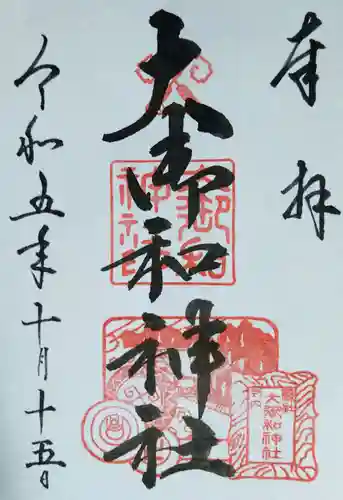 奉拝
大御和神社
令和五年十月十五日
大御和神社